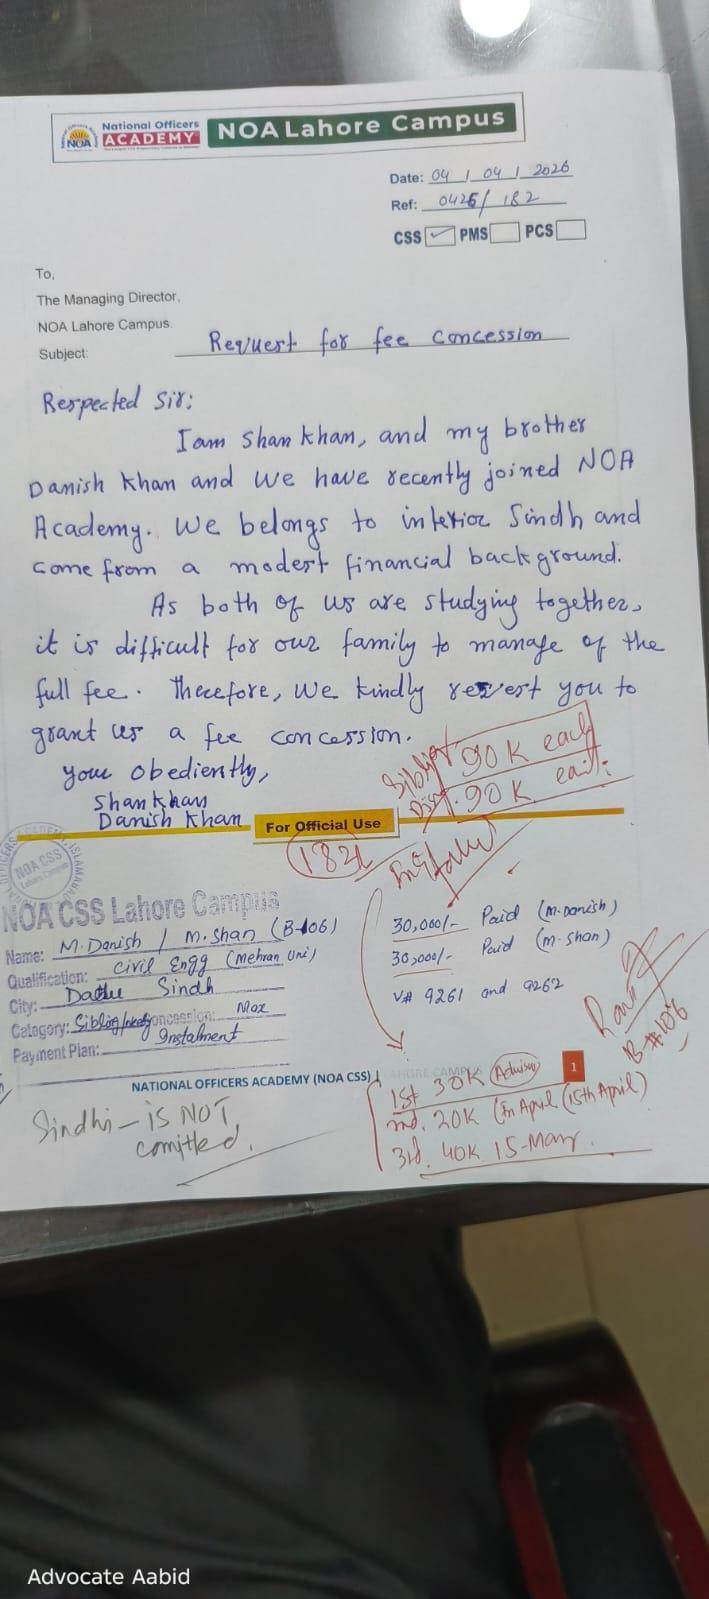 National Officers
ACADEMY
NOA
NOA Lahore Campus
Date: 04 / 04 / 2026
Ref: 0426/ 182
CSS ✓ PMS PCS
To,
The Managing Director,
NOA Lahore Campus.
Subject: Request for fee concession
Respected Sir:
I am Shan Khan, and my brother
Danish Khan and we have recently joined NOA
Academy. We belongs to interior Sindh and
come from a modest financial background.
As both of us are studying together,
it is difficult for our family to manage of the
full fee. Therefore, we kindly revest you to
grant us a fee concession.
your obediently,
Shan Khan
Danish Khan
90 K each
90 K each
For Official Use
182
NOA CSS
Lahore Campus
NOA CSS Lahore Campus
Name: M. Danish / M. Shan (B-106)
Qualification: Civil Engg (Mehran Uni)
City: Sindh
Category: Sibling concession: Max
Payment Plan: Instalment
30,000/- Paid (M. Danish)
30,000/- Paid (M. Shan)
V# 9261 and 9262
B#106
NATIONAL OFFICERS ACADEMY (NOA CSS) LAHORE CAMPUS
1
1st 30K
2nd. 20K (In April (15th April)
3rd. 40K 15-May
Sindhi - is NOT
Advocate Aabid